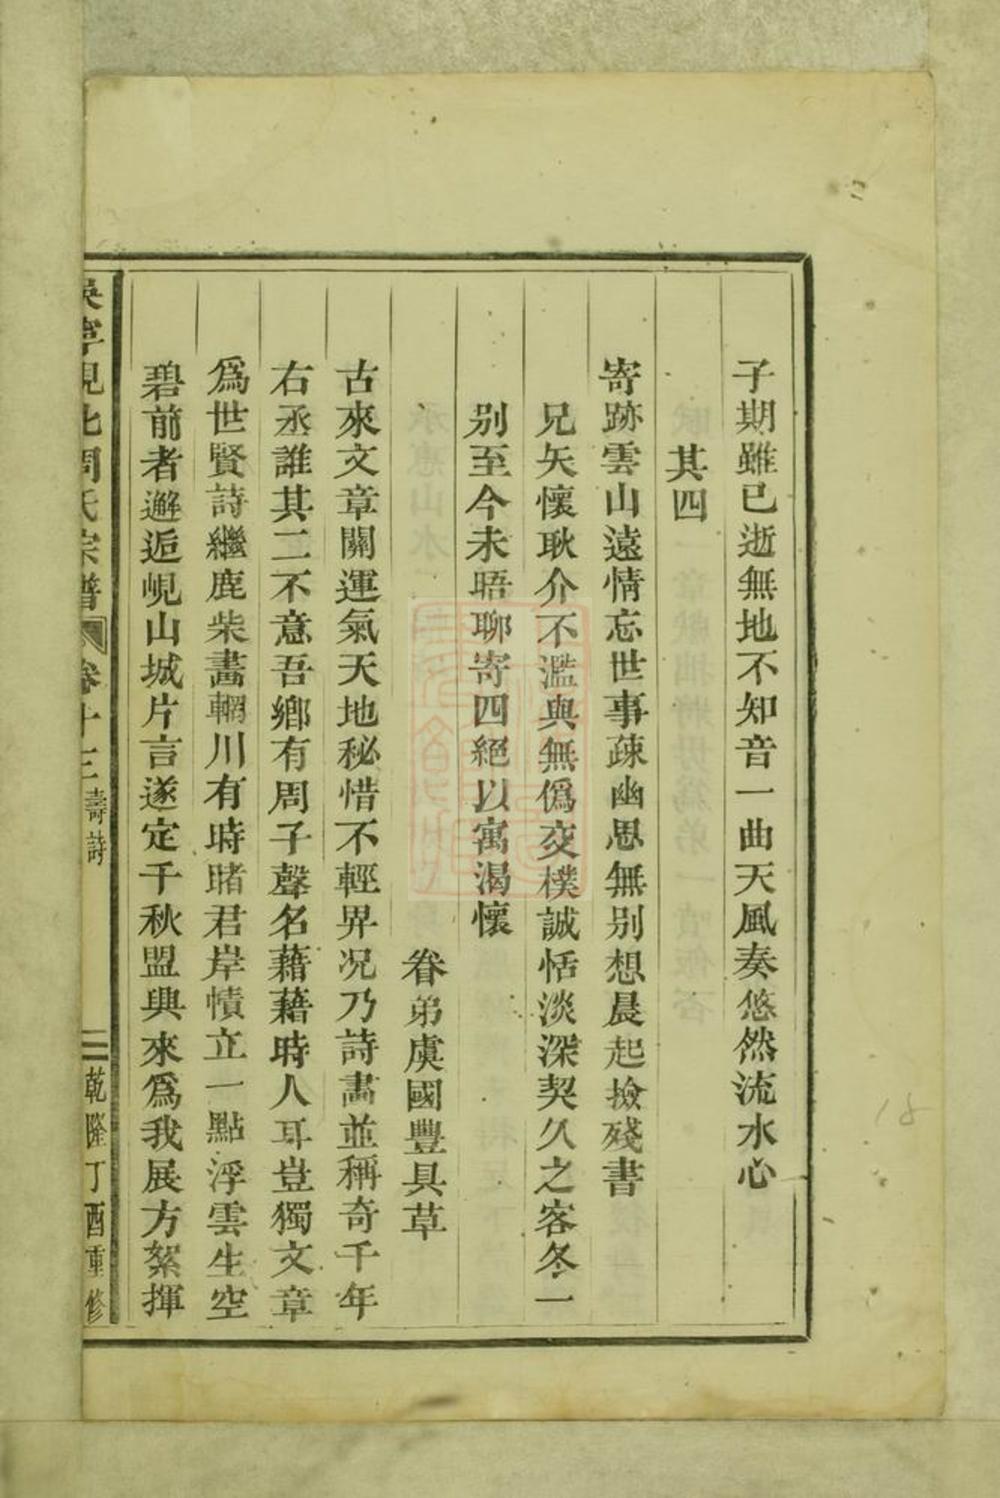 子期雖已逝無地不知音一曲天風奏悠然流水心
其四
寄跡雲山遠情忘世事疎幽思無别想晨起撿殘書
兄矢懷耿介不濫與無僞交樸誠恬淡深契久之客冬一
别至今未晤聊寄四絕以寓渴懷
眷弟虞國豐具草
古來文章關運氣天地秘惜不輕畀况乃詩畵並稱奇千年
右丞誰其二不意吾鄉有周子聲名藉藉時人耳豈獨文章
爲世賢詩繼鹿柴畵輞川有時睹君岸幘立一點浮雲生空
碧前者邂逅峴山城片言遂定千秋盟興來爲我展方絮揮
吳寧峴北周氏宗譜 卷十三 壽詩 二 乾隆丁酉重修